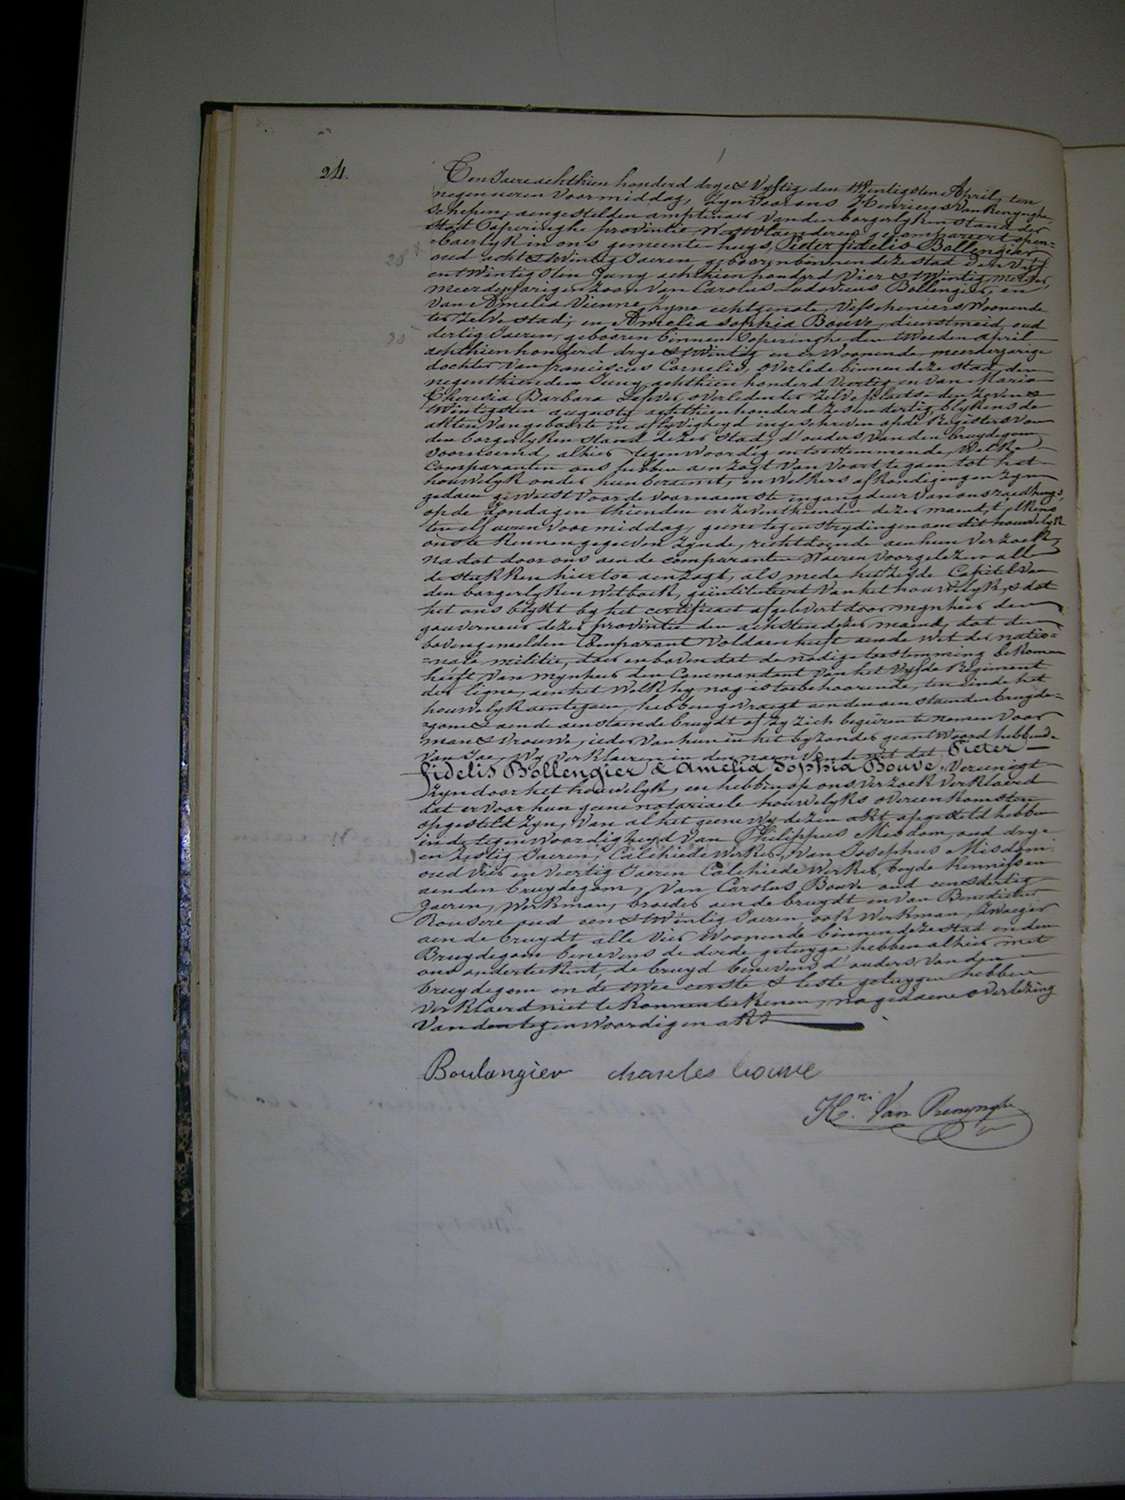 24.
Een Jaere achthien honderd drye & Vyftig, den twintigsten April, ten
negen ueren voormiddag, Zyn voor ons Henricus Van Renynghe,
Schepen, aengestelden amptenaer van den borgerlyken stand der
stad Poperinghe provintie Westvlaenderen gecompareert open=
=baerlyk in ons gemeente huys, Pieter fidelis Bollengier
28 oud acht & twintig Jaeren, geboren binnen deze stad den vyf
en twintigsten Juny achthien honderd vier & twintig,
meerderjarigen zoon van Carolus Ludovicus Bollengier, en
van Amelia Vienne, zyne echtgenote, Vischeniers, Woonende
ter zelve stad; en Amelia Sophia Bouve, dienstmeid, oud
30 dertig Jaeren, gebooren binnen Poperinghe den tweeden april
achthien honderd drye & twintig en er Woonende, meerderjarige
dochter van franciscus Cornelis, overlede binnen deze stad den
negenthienden Juny achthien honderd veertig en van Maria
Theresia Barbara Lefver, overleden ter zelve plaetse den zeven &
twintigsten augusty achthien honderd zes en dertig, blykens de
akten van geboorte en aflyvigheyd ingeschreven op de Registers van
den borgerlyken stand dezer stad, d'ouders van den bruydegom
voornoemd, alhier tegenwoordig en toestemmende, Welke
Comparanten ons hebben aenzogt van voort te gaen tot het
houwelyk onder hun beraemt, en Welkers afkondigingen zyn
gedaen geweest voor de voornaemste ingangdeur van ons raedhuys,
op de zondagen thienden en zeventhienden dezer maend, t'elkens
ten elf ueren voormiddag, geene tegenstrydingen aen dit houwelyk
ons te kennen gegeven zynde, rechtdoende aen hun verzoek,
na dat door ons aen de comparanten Waeren voorgelezen alle
de stukken hier toe aenzogt, als mede het zesde Capittel van
den borgerlyken Wetboek, geïntituleert van het houwelyk, & dat
het ons blykt by het certificaet afgelevert door mynheer den
gouverneur dezer provintie den achtsten dezer maend, dat den
bovengemelden Comparant voldaen heeft aende wet der natio=
=nale militie, dat er en boven dat de nodige toestemming bekomen
heeft van mynheer den Commandant van het vyfde Regiment
der ligne, aen het Welk hy nog is toebehoorende, ten einde het
houwelyk aentegaen, hebben gevraegt aen den aenstaenden bruyde=
=gom & aen de aenstaende bruydt of zy zich begeeren te nemen voor
man & vrouwe, ieder van hun in het byzonder geantwoord hebbende
van Ja, Wy verklaeren in den naem van de wet dat Pieter
fidelis Bollengier & Amelia Sophia Bouve vereenigt
zyn door het houwelyk, en hebben op ons verzoek verklaerd
dat er voor hun geene notariaele houwelyks overeenkomsten
opgesteld zyn, van al het geene Wy dezen akt opgesteld hebben
in de tegenwoordigheyd van Philippus Misdom, oud drye
en zestig Jaeren, Calchiede Werker, van Josephus Misdom,
oud vier en veertig Jaeren Calchiede Werker, beyde kennissen
aen den bruydegom, van Carolus Bouve oud een & dertig
Jaeren, Werkman, broeder aen de bruydt en van Benedictus
Rousere oud een & twintig Jaeren, ook Werkman, zwaeger
aen de bruydt alle vier Woonende binnen deze stad en den
Bruydegom benevens de derde getuyge hebben alhier met
ons onderteekent, de bruyd benevens d'ouders van den
bruydegom en de twee eerste & leste getuygen hebben
verklaerd niet te konnen teekenen, na gedaene overlezing
van den tegenwoordigen akt
Boulangier charles bouve
H.ri Van Renynghe